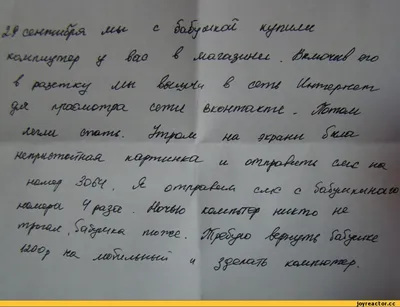 29 сентября мы с бабушкой купили
компиутер у вас в магазини. Включив его
в разетку мы вышли в сеть Интернет
для просмотра сети вконтакте. Потом
легли спать. Утром на экрани была
непристойная картинка и отправить смс на
номер 3064. Я отправел смс с бабушкиного
номера 4 раза. Ночью компьтер никто не
трогал, бабушка тоже. Требую вернуть бабушке
1200р на мобильный и зделать компютер.
joyreactor.cc